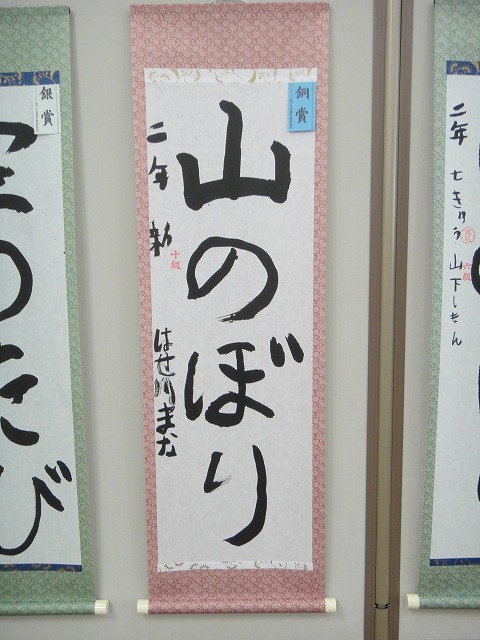 銅賞
山のぼり
二年 新
十級
はせ川まな
銀賞
のたび
二年 七きゅう 山下しもん
六級